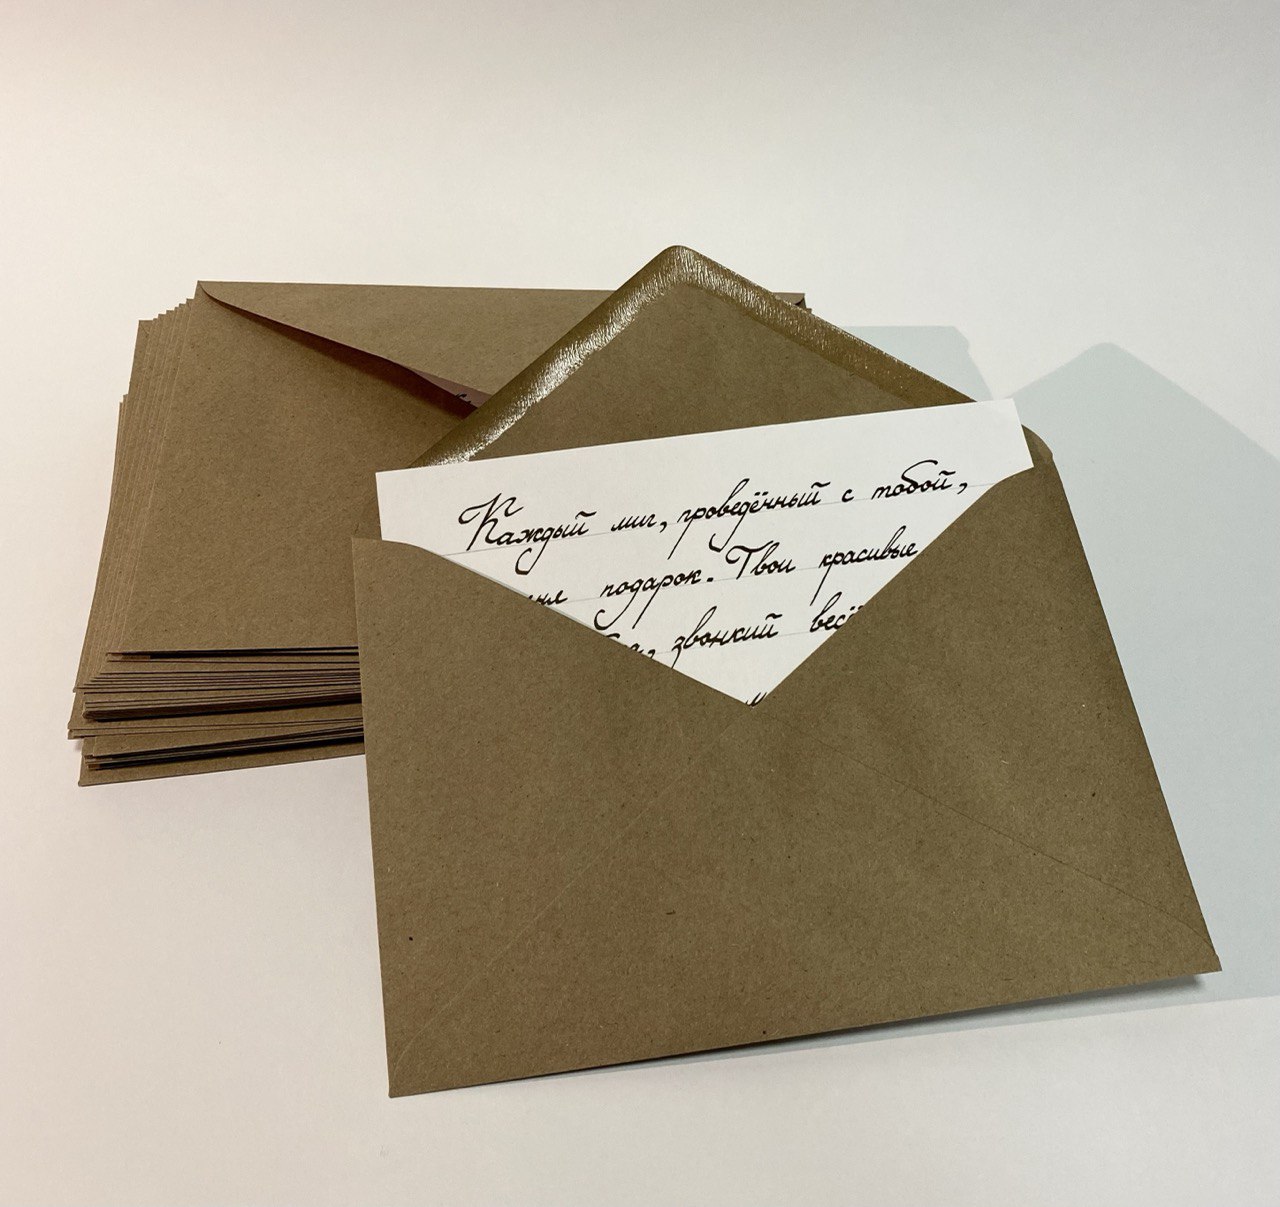 Каждый миг, проведённый с тобой,
подарок. Твои красивые
звонкий